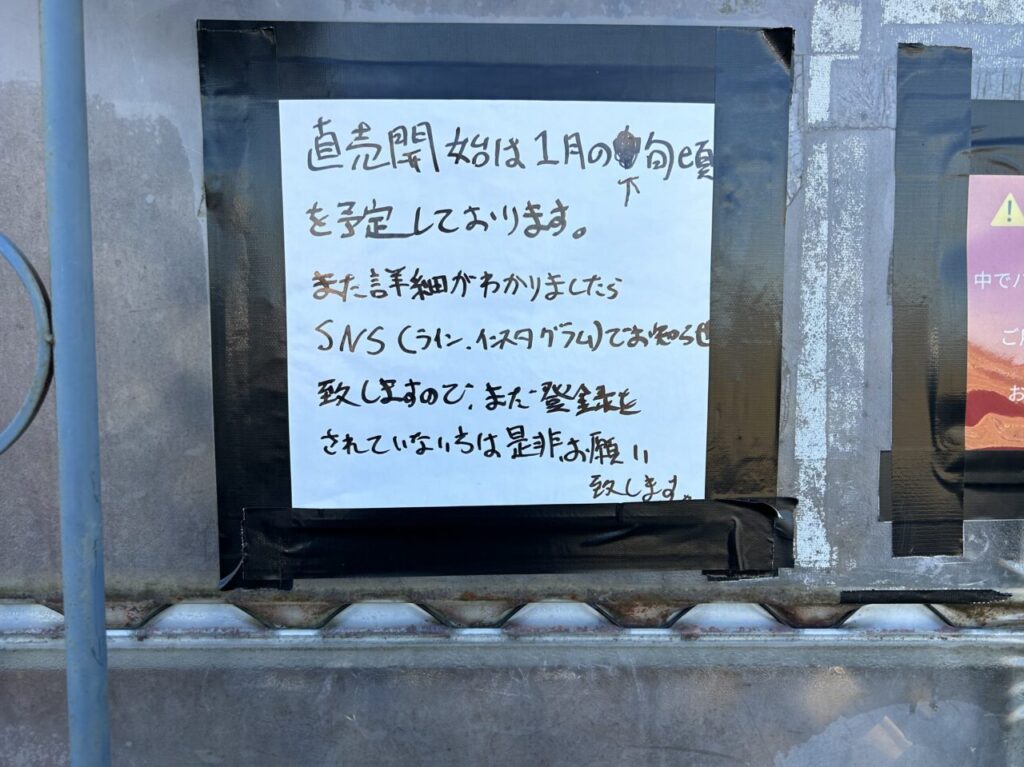 直売開始は1月の旬頃
↑
を予定しております。
また詳細がわかりましたら
SNS(ライン.インスタグラム)でお知らせ
致しますので、まだ登録を
されていない方は是非お願い
致します。
中で
ご
お